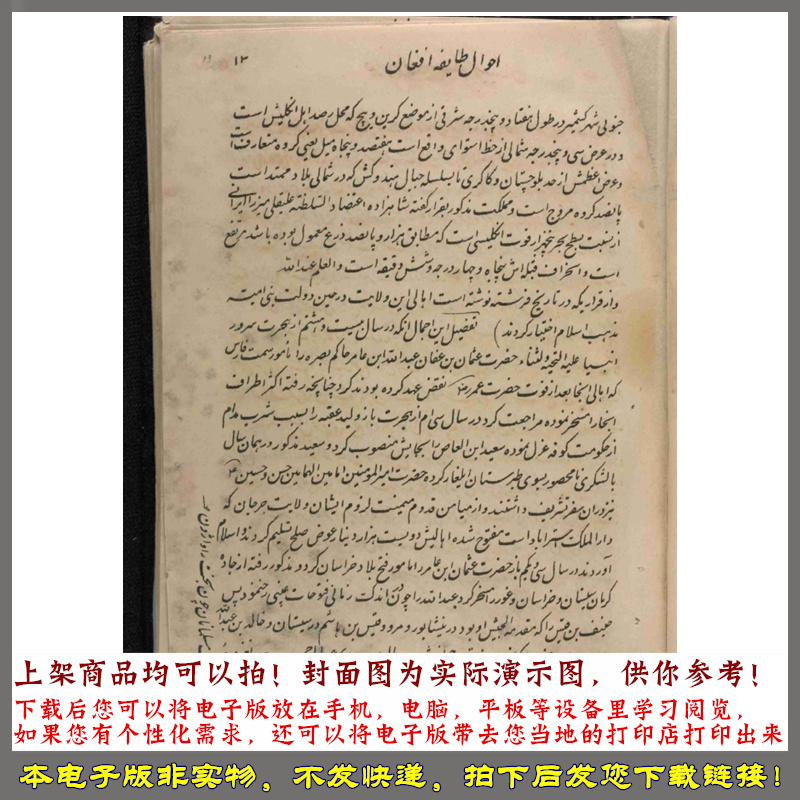 ۱۳ احوال طایفه افغان
جنوبی شهر کشمیر در طول هفتاد و پنجدرجه شرقی از موضع کرین ویچ که محل رصد اهل انگلیش است
و در عرض سی و پنجدرجه شمالی از خط استوای واقع است هفتصد و پنجاه میل یعنی کروه متعارف است
و عرض اعظمش از حد بلوچستان و کاکری تا بسلسله جبال هندوکش که در شمالی بلاد ممتد است
پانصد کروه مروج است و مملکت مذکور بقرار گفته شاهزاده اعتضاد السلطنه علیقلی میرزا ایرانی
از نسبت بسطح بحر پنجهزار فوت انگلیسی است که مطابق هزار و پانصد ذرع معمول بوده باشد مرتفع
است و انحراف قبله اش پنجاه و چهار درجه و شش دقیقه است والعلم عندالله
و از قراریکه در تاریخ فرشته نوشته است اهالی این ولایت در حین دولت بنی امیه
مذهب اسلام اختیار کردند) تفصیل این اجمال آنکه در سال بیست و هشتم از هجرت سرور
انبیا علیه التحیه والثناء حضرت عثمان بن عفان عبدالله ابن عامر حاکم بصره را مامور سمت فارس
که اهالی آنجا بعد از فوت حضرت عمر نقض عهد کرده بودند کرد چنانچه رفته اکثر اطراف
آنجا را مسخر نموده مراجعت کرد در سال سی ام از هجرت باز ولید عقبه را بسبب شرب مدام
از حکومت کوفه عزل نموده سعید ابن العاص را بجایش منصوب کرد و سعید مذکور در همان سال
با لشکری نامحصور بسوی طبرستان ایلغار کرده حضرت امیرالمؤمنین امامین الهمامین حسن و حسین
نیز در ان سفر تشریف داشتند و از میامن قدوم میمنت لزوم ایشان ولایت جرجان که
دار الملک استراباد است مفتوح شده اهالیش دویست هزار دینار عوض صلح تسلیم کردند و اسلام
آوردند در سال سی و یکم باز حضرت عثمان ابن عامر را مامور فتح بلاد خراسان کرد و مذکور رفته از جاده
کرمان سیستان و خراسان و غور را مسخر کرد عبدالله را چون در اندک زمانی فتوحات غیبی رخ نمود پس
حنیف بن قیس را که مقدمه الجیش او بود در نیشاپور و مرو و قیس بن هاشم در سیستان و خالد بن عبدالله
上架商品均可以拍！封面图为实际演示图，供你参考！
下载后您可以将电子版放在手机，电脑，平板等设备里学习阅览，
如果您有个性化需求，还可以将电子版带去您当地的打印店打印出来
本电子版非实物，不发快递，拍下后发您下载链接！